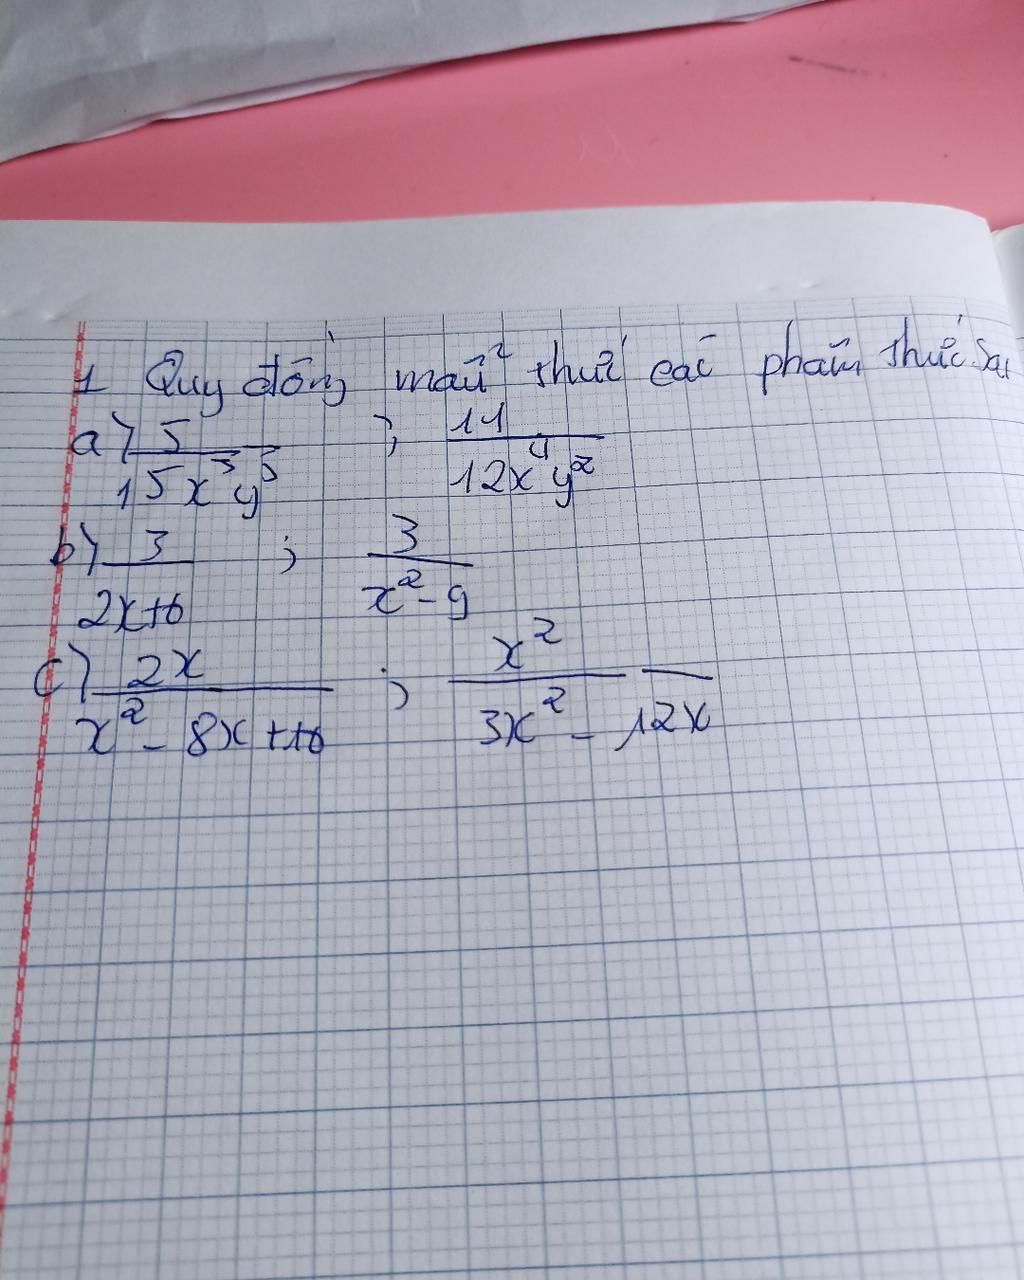 1 Quy đồng mẫu² thức các phân thức sau
a) 5/(15x³y⁵) ; 11/(12x⁴y²)
b) 3/(2x+6) ; 3/(x²-9)
c) 2x/(x²-8x+16) ; x²/(3x²-12x)